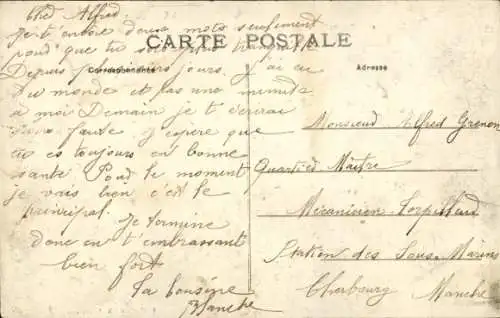 Cher Alfred.
Je t'envoie deux mots seulement
pour que tu sois plus tranquille
CARTE POSTALE
Correspondance
Adresse
Depuis plusieurs jours, j'ai eu
du monde et pas une minute
à moi Demain je t'écrirai
sans faute J'espère que
tu es toujours en bonne
santé Pour le moment
je vais bien c'est le
principal.
Je termine
donc en t'embrassant
bien fort
Ta cousine
Blanche
Monsieur Alfred Grenon
Quartier Maître
Mécanicien Torpilleur
Station des Sous-Marins
Cherbourg Manche